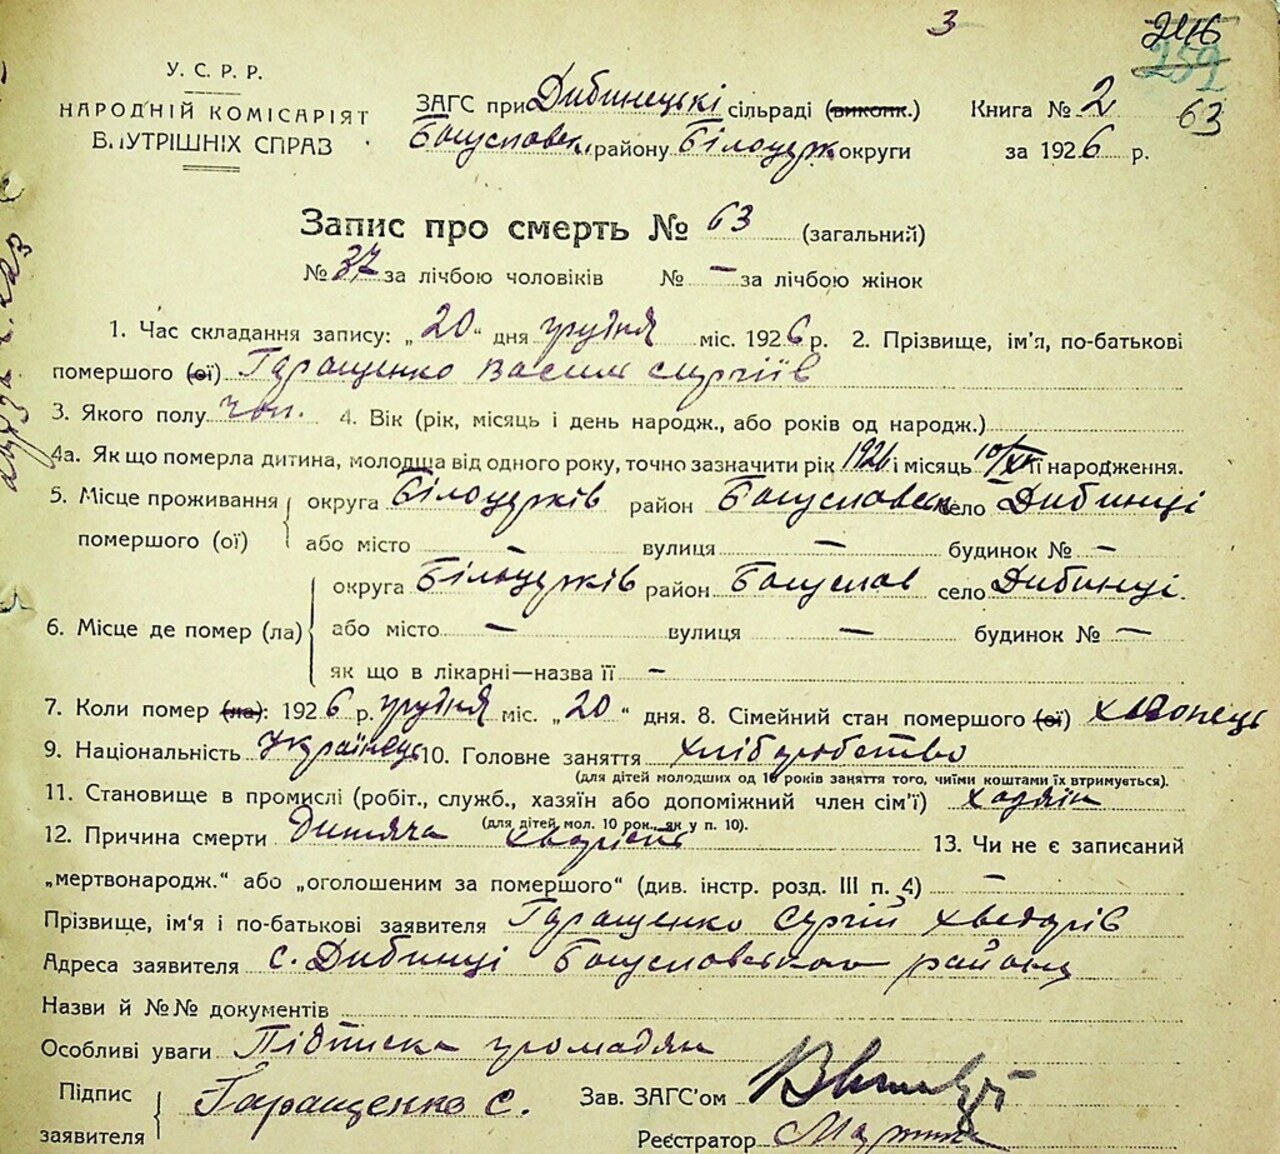 3
246
259
У. С. Р. Р.
НАРОДНІЙ КОМІСАРІЯТ
ВНУТРІШНІХ СПРАВ
ЗАГС при Дибинецькі сільраді (виконк.)
Книга № 2
63
Богуславськ. району Білоцерк округи
за 1926 р.
Запис про смерть № 63 (загальний)
№ 37 за лічбою чоловіків № — за лічбою жінок
1. Час складання запису: „20“ дня грудня міс. 1926 р. 2. Прізвище, ім'я, по-батькові
помершого (ої) Гаращенко Василь Сергіїв
3. Якого полу чол. 4. Вік (рік, місяць і день народж., або років од народж.)
4а. Як що померла дитина, молодша від одного року, точно зазначити рік 1926 і місяць 10/XI її народження.
5. Місце проживання помершого (ої)
округа Білоцерків район Богуславськ село Дибинці
або місто — вулиця — будинок № —
6. Місце де помер (ла)
округа Білоцерків район Богуслав село Дибинці.
або місто — вулиця — будинок № —
як що в лікарні—назва її —
7. Коли помер (ла): 1926 р. грудня міс. „20“ дня. 8. Сімейний стан помершого (ої) хлопець
9. Національність Українець 10. Головне заняття хліборобство
(для дітей молодших од 10 років заняття того, чиїми коштами їх втримується).
11. Становище в промислі (робіт., служб., хазяїн або допоміжний член сім'ї) хазяїн
(для дітей мол. 10 рок., як у п. 10).
12. Причина смерти Дитяча хворість 13. Чи не є записаний
„мертвонародж.“ або „оголошеним за помершого“ (див. інстр. розд. III п. 4) —
Прізвище, ім'я і по-батькові заявителя Гаращенко Сергій Хведорів
Адреса заявителя с. Дибинці Богуславського району
Назви й №№ документів
Особливі уваги Підписка громадян
Підпис заявителя Гаращенко С.
Зав. ЗАГС'ом
Реєстратор